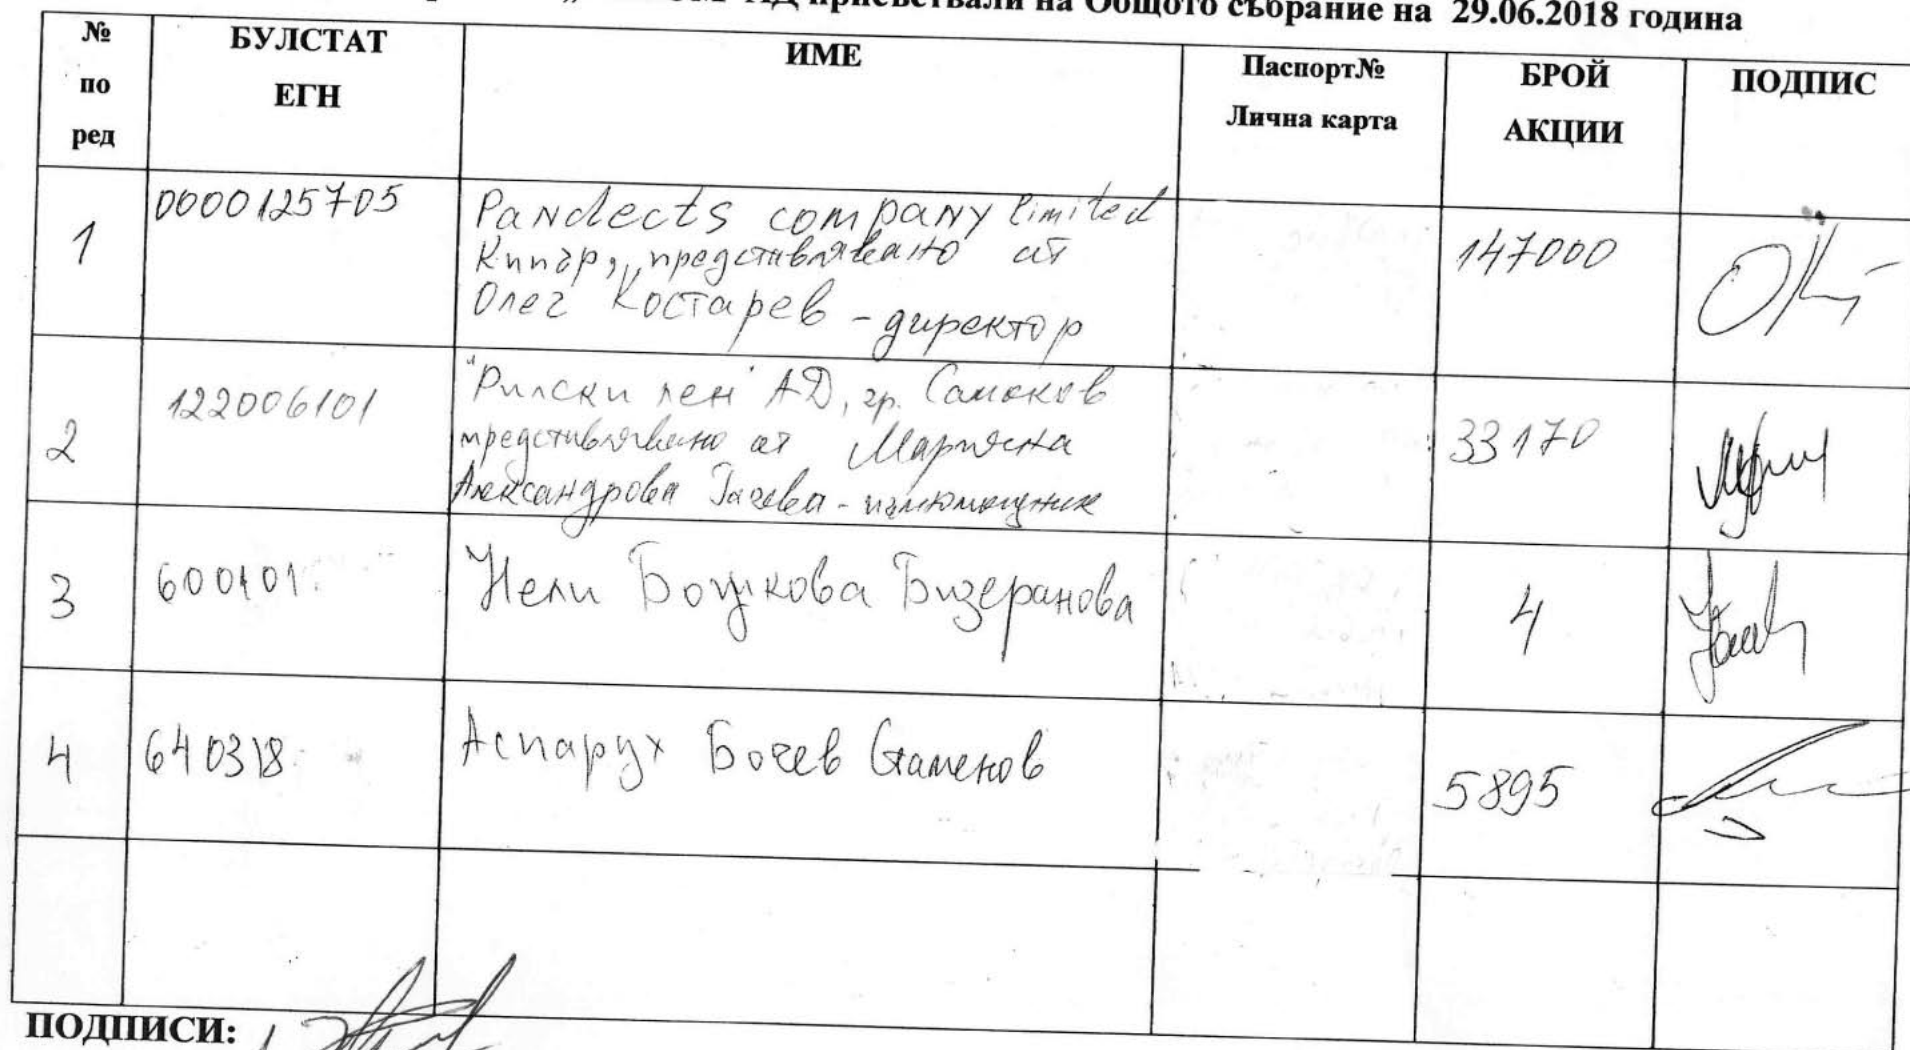 АД присъствали на Общото събрание на 29.06.2018 година
№ по ред
БУЛСТАТ ЕГН
ИМЕ
Паспорт№ Лична карта
БРОЙ АКЦИИ
ПОДПИС
1
0000125705
Pandects company limited
Кипър, представлявано от
Олег Костарев - директор
147000
2
122006101
"Рилски лен" АД, гр. Самоков
представлявано от Марияна
Александрова Гачева - пълномощник
33170
3
600101
Нели Божкова Бизеранова
4
4
640318
Аспарух Бочев Стаменов
5895
ПОДПИСИ: